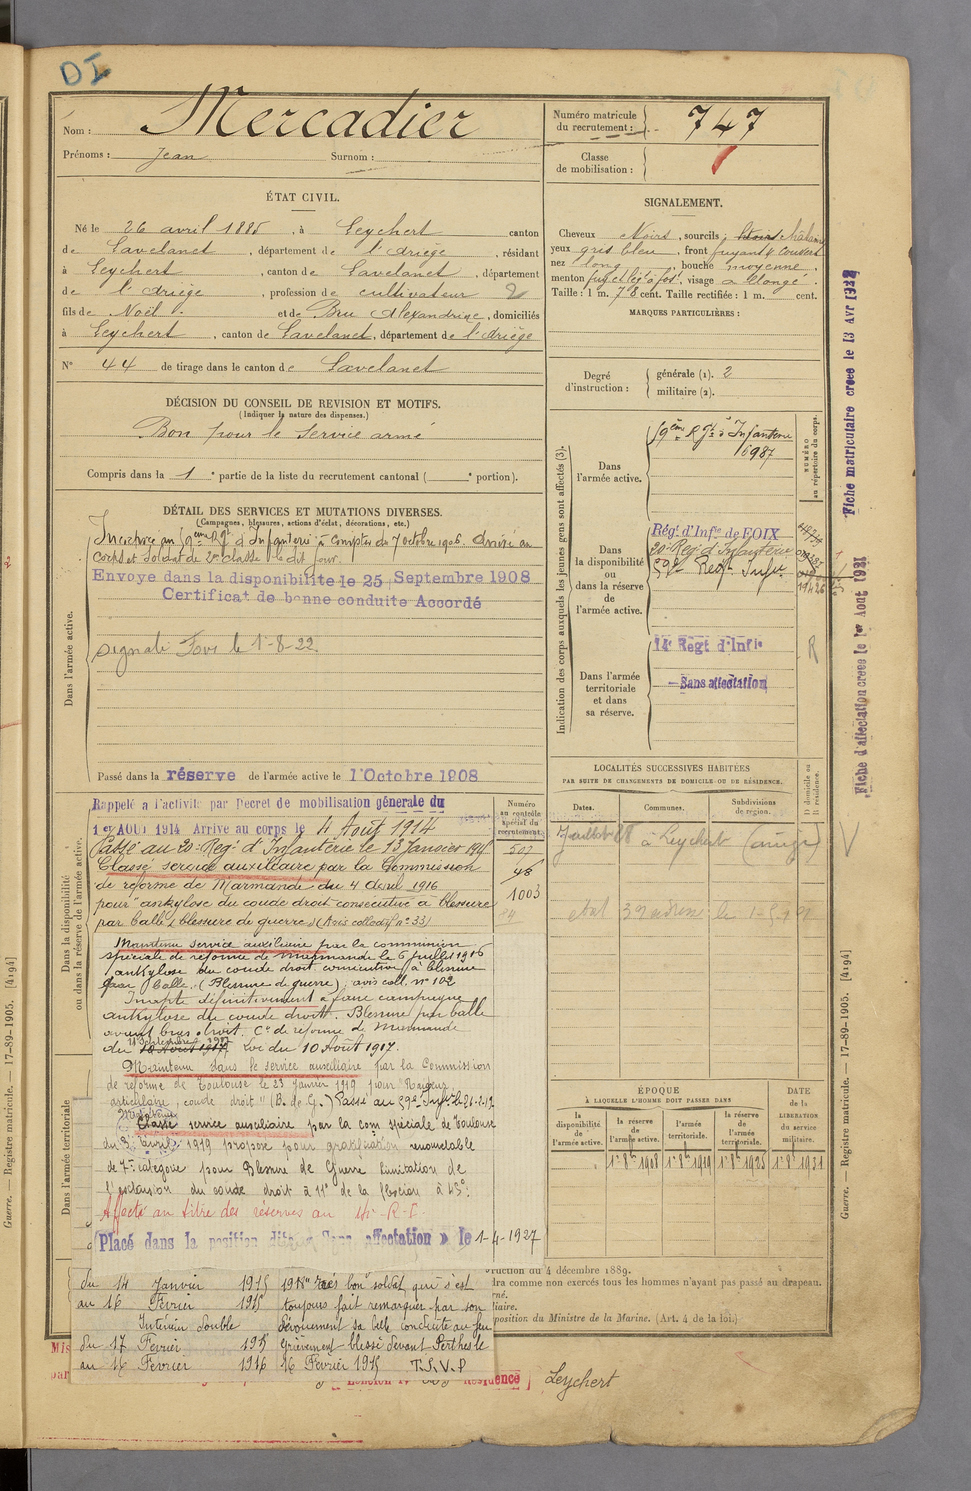 DI
Nom : Mercadier
Prénoms : Jean Surnom :
Numéro matricule du recrutement : 747
Classe de mobilisation :
ÉTAT CIVIL.
Né le 26 avril 1885, à Leychert canton
de Lavelanet, département de l'Ariège, résidant
à Leychert, canton de Lavelanet, département
de l'Ariège, profession de cultivateur 2
fils de Noël et de Bru Alexandrine, domiciliés
à Leychert, canton de Lavelanet, département de l'Ariège
N° 44 de tirage dans le canton de Lavelanet
DÉCISION DU CONSEIL DE REVISION ET MOTIFS.
(Indiquer la nature des dispenses.)
Bon pour le service armé
Compris dans la 1e partie de la liste du recrutement cantonal ( e portion).
DÉTAIL DES SERVICES ET MUTATIONS DIVERSES.
(Campagnes, blessures, actions d'éclat, décorations, etc.)
Dans l'armée active.
Incorporé au 59ème Rgt d'Infanterie à compter du 7 octobre 1906. Arrivé au
corps et soldat de 2me classe le dit jour.
Envoyé dans la disponibilité le 25 Septembre 1908
Certificat de bonne conduite Accordé
signalé Foix le 1-8-22
Passé dans la réserve de l'armée active le 1 Octobre 1908
Dans la disponibilité ou dans la réserve de l'armée active.
Numéro au contrôle spécial du recrutement.
Rappelé a l'activité par Decret de mobilisation générale du
1er AOUT 1914 Arrive au corps le 4 Août 1914
Passé au 20e Reg. d'Infanterie le 13 Janvier 1915
507
Classé service auxiliaire par la Commission
48
de réforme de Marmande du 4 Avril 1916
1003
pour "ankylose du coude droit consécutive à blessure
84
par balle (blessure de guerre) (Avis collectif n° 33)
Maintenu service auxiliaire par la commission
spéciale de réforme de Marmande le 6 Juillet 1916
ankylose du coude droit consécutive à blessure
par balle. (Blessure de guerre), avis coll. n° 102
Inapte définitivement à faire campagne
ankylose du coude droit. Blessure par balle
avant bras droit. Cn de réforme de Marmande
du 10 Août 1917 Loi du 10 Août 1917.
Dans l'armée territoriale
Maintenu dans le service auxiliaire par la Commission
de réforme de Toulouse le 23 janvier 1919 pour
articulaire, coude droit" (B. de G.) Passé au 59e Inf.
Maintenu
Classé service auxiliaire par la com spéciale de Toulouse
du 3 avril 1919 proposé pour gratification renouvelable
de 7me catégorie pour Blessure de Guerre limitation de
l'extension du coude droit à 11° de la flexion à 45°.
Affecté au titre des réserves au 14e R.I.
Placé dans la position dite « Sans affectation » le 1-4-1927
du 14 Janvier 1915
au 16 Février 1915
Intérieur double
du 17 Février 1915
au 16 Février 1916
très bon soldat qui s'est
toujours fait remarquer par son
dévouement sa belle conduite au feu
Grièvement blessé devant Perthes le
16 Février 1915 T.S.V.P
SIGNALEMENT.
Cheveux Noirs, sourcils Noirs châtains
yeux gris bleu, front fuyant
nez long, bouche moyenne,
menton, visage allongé.
Taille : 1 m. 78 cent. Taille rectifiée : 1 m. cent.
MARQUES PARTICULIÈRES :
Degré d'instruction : générale (1). 2
militaire (2).
Indication des corps auxquels les jeunes gens sont affectés (3).
NUMÉRO au répertoire du corps.
Dans l'armée active.
59ème Rgt d'Infanterie
6987
Dans la disponibilité ou dans la réserve de l'armée active.
Régt d'Infie de FOIX
20e Reg. d'Infanterie
59e Reg. Infie
Dans l'armée territoriale et dans sa réserve.
14e Regt d'Infie
R
Sans affectation
LOCALITÉS SUCCESSIVES HABITÉES
PAR SUITE DE CHANGEMENTS DE DOMICILE OU DE RÉSIDENCE.
D domicile ou R résidence.
Dates.
Communes.
Subdivisions de région.
à Leychert (Ariège)
ÉPOQUE
À LAQUELLE L'HOMME DOIT PASSER DANS
DATE de la LIBÉRATION du service militaire.
la disponibilité de l'armée active.
la réserve de l'armée active.
l'armée territoriale.
la réserve de l'armée territoriale.
1er 8bre 1908
1er 8bre 1919
1er 8bre 1925
1er 8bre 1931
ruction du 4 décembre 1889.
dra comme non exercés tous les hommes n'ayant pas passé au drapeau.
rné.
liaire.
position du Ministre de la Marine. (Art. 4 de la loi.)
Résidence
Leychert
Fiche d'affectation creee le 1er Aout 1921
Guerre. — Registre matricule. — 17-89-1905. [4194]
Guerre. — Registre matricule. — 17-89-1905. [4194]